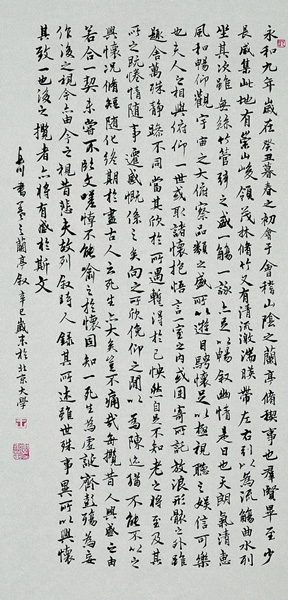 永和九年歲在癸丑暮春之初會于會稽山陰之蘭亭脩稧事也群賢畢至少
長咸集此地有崇山峻領茂林脩竹又有清流激湍暎帶左右引以為流觴曲水列
坐其次雖無絲竹管弦之盛一觴一詠亦足以暢敘幽情是日也天朗氣清惠
風和暢仰觀宇宙之大俯察品類之盛所以遊目騁懷足以極視聽之娛信可樂
也夫人之相與俯仰一世或取諸懷抱悟言一室之內或因寄所託放浪形骸之外雖
趣舍萬殊靜躁不同當其欣於所遇暫得於己怏然自足不知老之將至及其
所之既惓情隨事遷感慨係之矣向之所欣俛仰之閒以為陳迹猶不能不以之
興懷況脩短隨化終期於盡古人云死生亦大矣豈不痛哉每攬昔人興感之由
若合一契未嘗不臨文嗟悼不能喻之於懷固知一死生為虛誕齊彭殤為妄
作後之視今亦由今之視昔悲夫故列敘時人錄其所述雖世殊事異所以興懷
其致一也後之攬者亦將有感於斯文
川書羲之蘭亭敘 辛巳歲末於北京大學